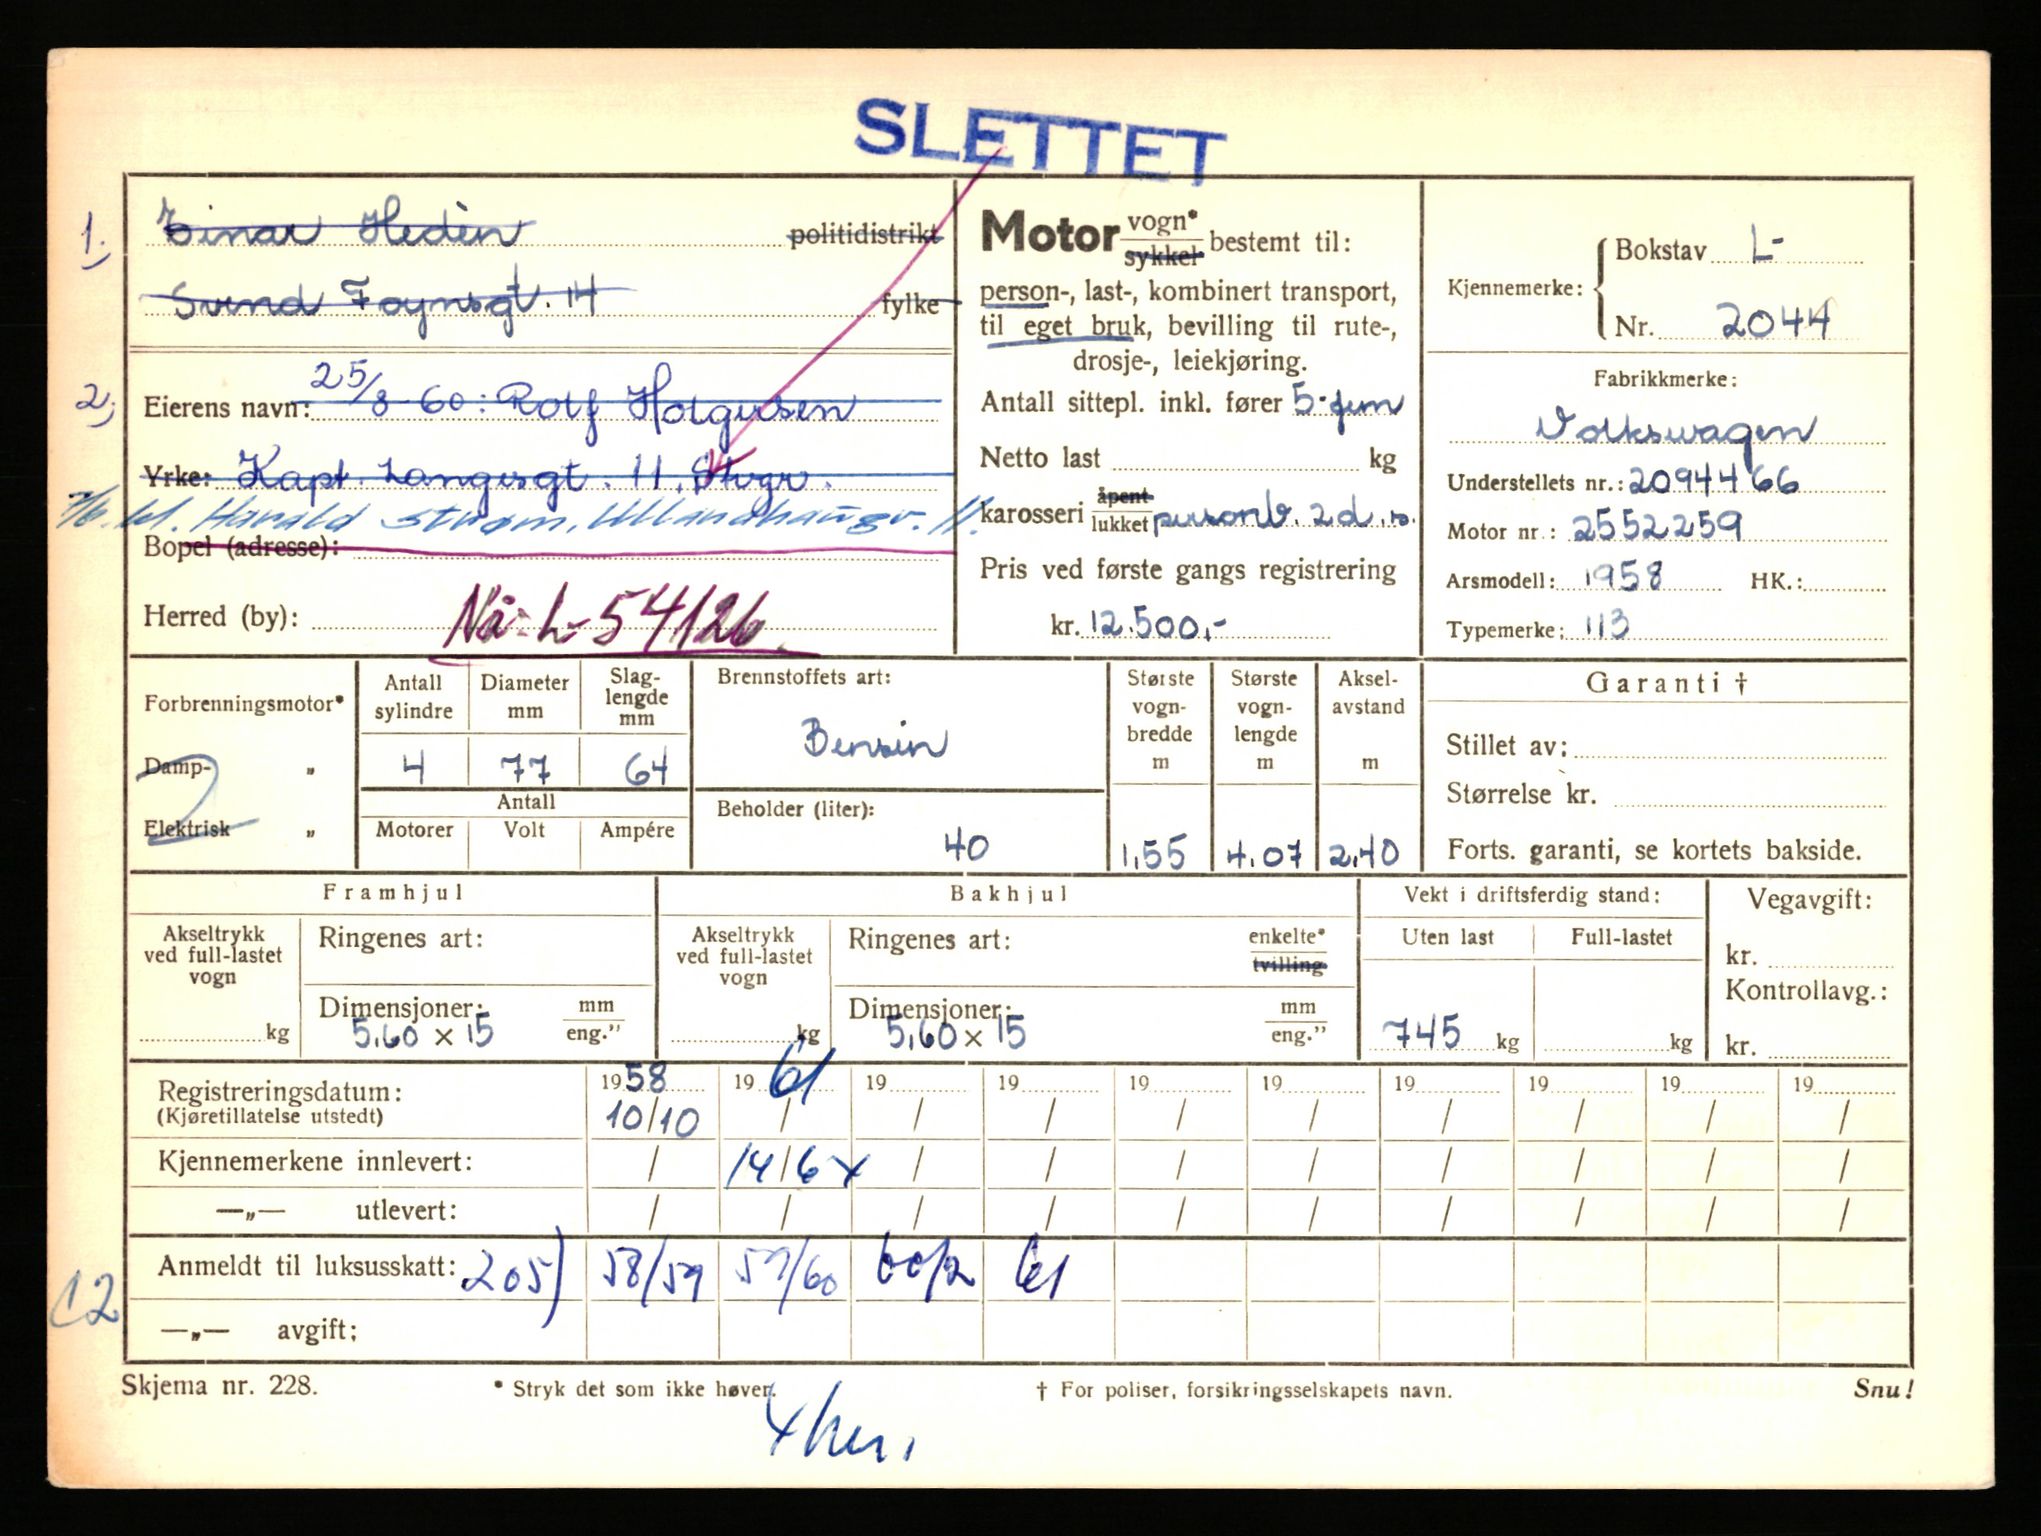 SLETTET
1. Einar Hedèn politidistrikt
Svend Foynsgt. 14 fylke
2, Eierens navn: 25/8-60: Rolf Holgersen
Yrke: Kapt. Langesgt. 11. Stvgr.
7/6.61. Harald Strøm, Ullandhaugv. 11.
Bopel (adresse):
Herred (by): Nå: L-54126
Motor vogn* sykkel bestemt til:
person-, last-, kombinert transport,
til eget bruk, bevilling til rute-,
drosje-, leiekjøring.
Antall sittepl. inkl. fører 5-fem
Netto last kg
karosseri åpent lukket personb. 2 d.
Pris ved første gangs registrering
kr. 12.500,-
Kjennemerke: Bokstav L-
Nr. 2044
Fabrikkmerke:
Volkswagen
Understellets nr.: 2094466
Motor nr.: 2552259
Arsmodell: 1958 HK.:
Typemerke: 113
Forbrenningsmotor*
Damp- „
Elektrisk „
2
Antall sylindre
Diameter mm
Slag-lengde mm
4 77 64
Antall
Motorer Volt Ampére
Brennstoffets art:
Bensin
Beholder (liter):
40
Største vogn-bredde m
1,55
Største vogn-lengde m
4.07
Aksel-avstand m
2,40
Garanti †
Stillet av:
Størrelse kr.
Forts. garanti, se kortets bakside.
Framhjul
Akseltrykk ved full-lastet vogn
kg
Ringenes art:
Dimensjoner: mm eng."
5,60 x 15
Bakhjul
Akseltrykk ved full-lastet vogn
kg
Ringenes art: enkelte* tvilling
Dimensjoner: mm eng."
5,60 x 15
Vekt i driftsferdig stand:
Uten last Full-lastet
745 kg kg
Vegavgift:
kr.
Kontrollavg.:
kr.
Registreringsdatum: 1958 1961 19 19 19 19 19 19 19 19
(Kjøretillatelse utstedt) 10/10 / / / / / / / / /
Kjennemerkene innlevert: / 14/6 x / / / / / / / /
—„— utlevert: / / / / / / / / / /
Anmeldt til luksusskatt: 205) 58/59 59/60 60/2 61
12
—„— avgift:
Skjema nr. 228. * Stryk det som ikke høver. † For poliser, forsikringsselskapets navn. Snu!